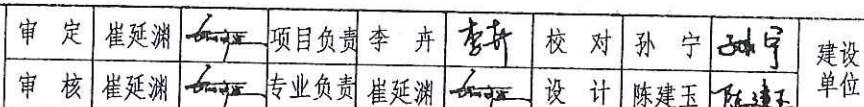 审 定 崔延渊 项目负责 李 卉 李卉 校 对 孙 宁 孙宁 建设
审 核 崔延渊 专业负责 崔延渊 设 计 陈建玉 陈建玉 单位